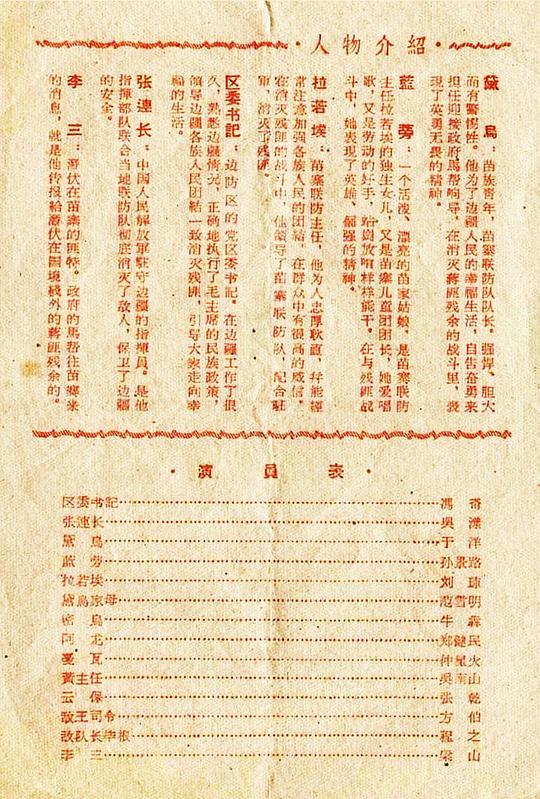 ·人物介紹·
黛　烏：苗族青年，苗寨联防队队长。强悍、胆大
而有警惕性。他为了边疆人民的幸福生活，自告奋勇来
担任迎接政府馬帮向导，在消灭蒋匪残余的战斗里，表
現了英勇无畏的精神。
藍　劳：一个活泼、漂亮的苗家姑娘，是苗寨联防
主任拉若埃的独生女儿，又是苗寨儿童团团长，她爱唱
歌，又是劳动的好手，站崗放哨样样能干。在与残匪战
斗中，她表現了英雄、倔强的精神。
拉若埃：苗寨联防主任，他为人忠厚耿直，并能經
常注意加强各族人民的团結，在群众中有很高的威信。
在消灭残匪的战斗中，他領导了苗寨联防队，配合駐
軍，消灭了残匪。
区委书記：边防区的党区委书記。在边疆工作了很
久，熟悉边疆情况，正确地执行了毛主席的民族政策，
領导边疆各族人民团結一致消灭残匪，引导大家走向幸
福的生活。
张連长：中国人民解放軍駐守边疆的指揮員。是他
指揮部队联合当地联防队彻底消灭了敌人，保卫了边疆
的安全。
李　三：潛伏在苗寨的匪特。政府的馬帮往苗寨来
的消息，就是他传报給潛伏在国境綫外的蒋匪残余的。
·演員表·
区委书記……馮奇
张連长……吳漾
黛烏……于洋
蓝劳……孙景路
拉若埃……刘琼
黛烏家母……范雪明
密烏……牛犇
阿龙……郑健民
瓦……仲星火
黃主任……吳南山
云保……张乾
敌王司令……方伯
敌队长……程之
李三……梁山